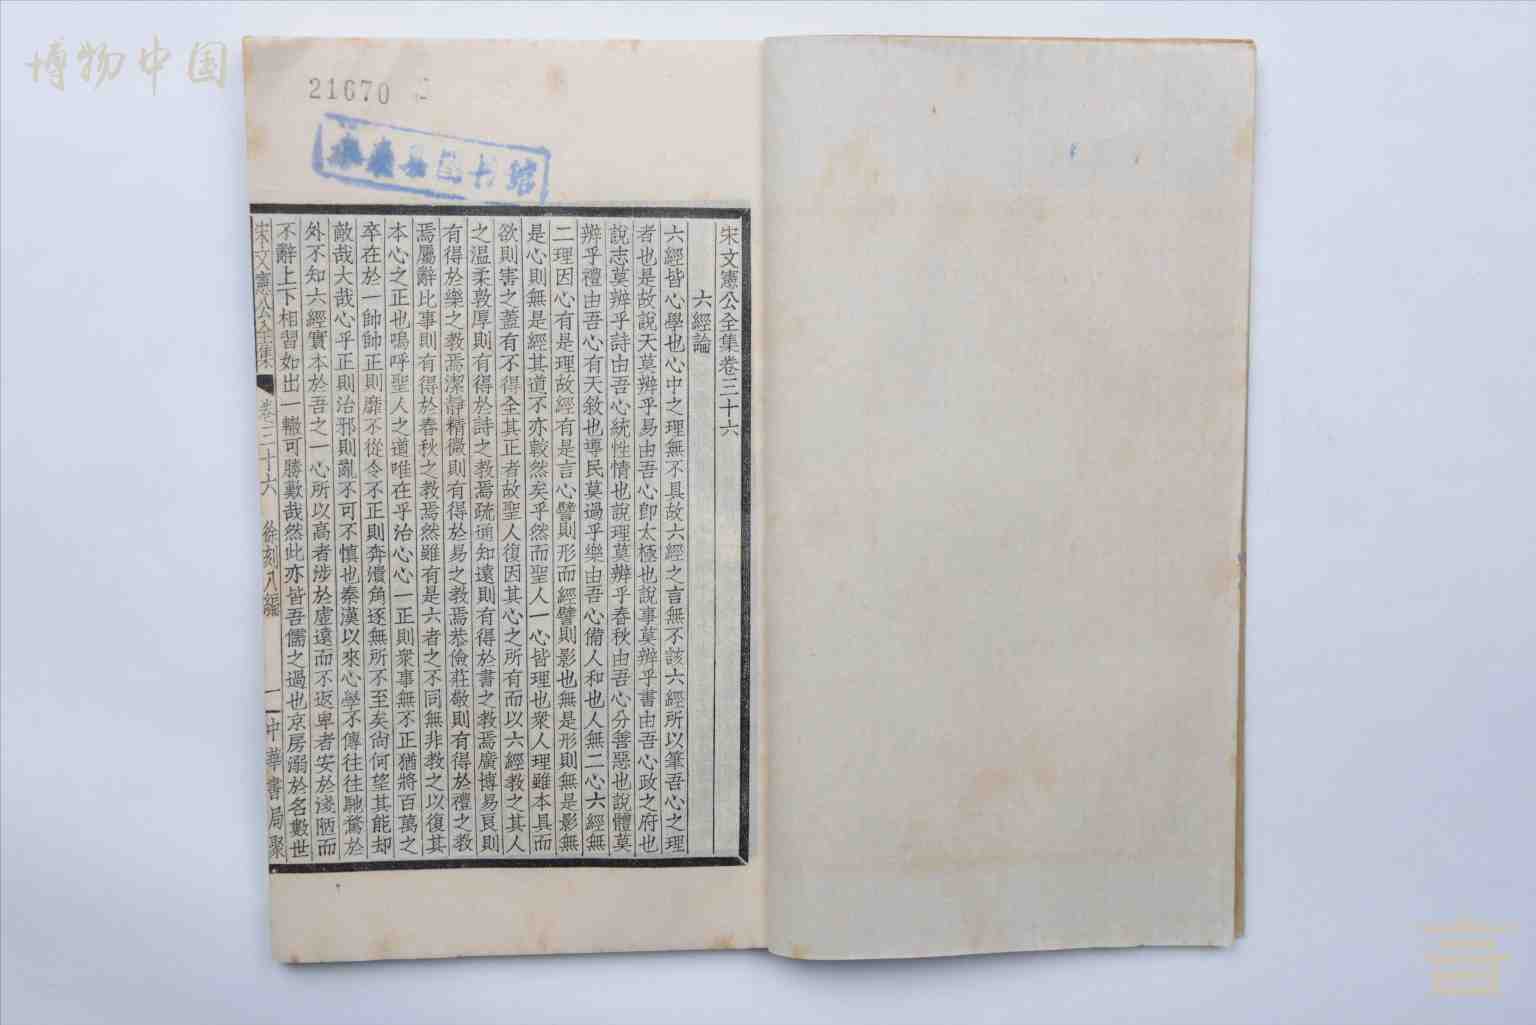 博物中国
21670
宋文憲公全集卷三十六
六經論
六經皆心學也心中之理無不具故六經之言無不該六經所以筆吾心之理
者也是故說天莫辨乎易由吾心卽太極也說事莫辨乎書由吾心政之府也
說志莫辨乎詩由吾心統性情也說理莫辨乎春秋由吾心分善惡也說體莫
辨乎禮由吾心有天敘也導民莫過乎樂由吾心備人和也人無二心六經無
二理因心有是理故經有是言心譬則形而經譬則影也無是形則無是影無
是心則無是經其道不亦較然矣乎然而聖人一心皆理也衆人理雖本具而
欲則害之蓋有不得全其正者故聖人復因其心之所有而以六經教之其人
之温柔敦厚則有得於詩之教焉疏通知遠則有得於書之教焉廣博易良則
有得於樂之教焉潔靜精微則有得於易之教焉恭儉莊敬則有得於禮之教
焉屬辭比事則有得於春秋之教焉然雖有是六者之不同無非教之以復其
本心之正也嗚呼聖人之道唯在乎治心心一正則衆事無不正猶將百萬之
卒在於一帥帥正則靡不從令不正則奔潰角逐無所不至矣尙何望其能却
敵哉大哉心乎正則治邪則亂不可不慎也秦漢以來心學不傳往往馳騖於
外不知六經實本於吾之一心所以高者涉於虛遠而不返卑者安於淺陋而
不辭上下相習如出一轍可勝歎哉然此亦皆吾儒之過也京房溺於名數世
宋文憲公全集 卷三十六 徐刻八編 一 中華書局聚